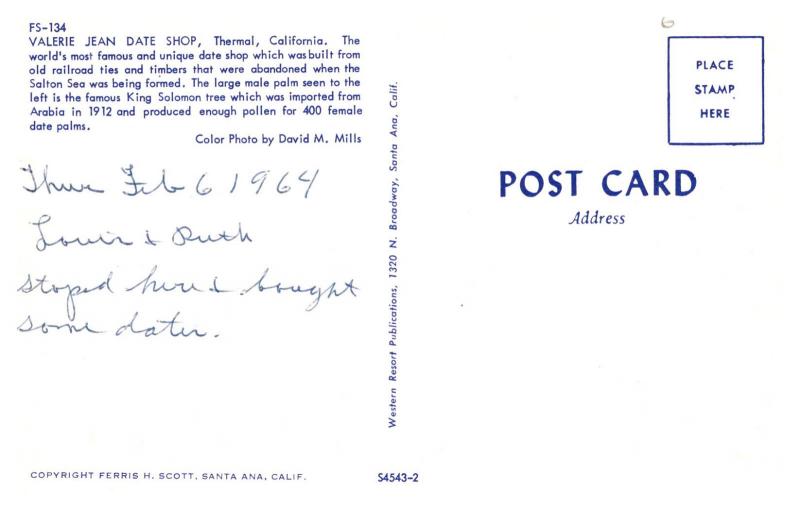 FS-134
VALERIE JEAN DATE SHOP, Thermal, California. The
world's most famous and unique date shop which was built from
old railroad ties and timbers that were abandoned when the
Salton Sea was being formed. The large male palm seen to the
left is the famous King Solomon tree which was imported from
Arabia in 1912 and produced enough pollen for 400 female
date palms.
Color Photo by David M. Mills
Thur Feb 6 1964
Louis & Ruth
stoped here & bought
some dates.
COPYRIGHT FERRIS H. SCOTT, SANTA ANA, CALIF.
Western Resort Publications, 1320 N. Broadway, Santa Ana, Calif.
S4543-2
6
PLACE
STAMP
HERE
POST CARD
Address